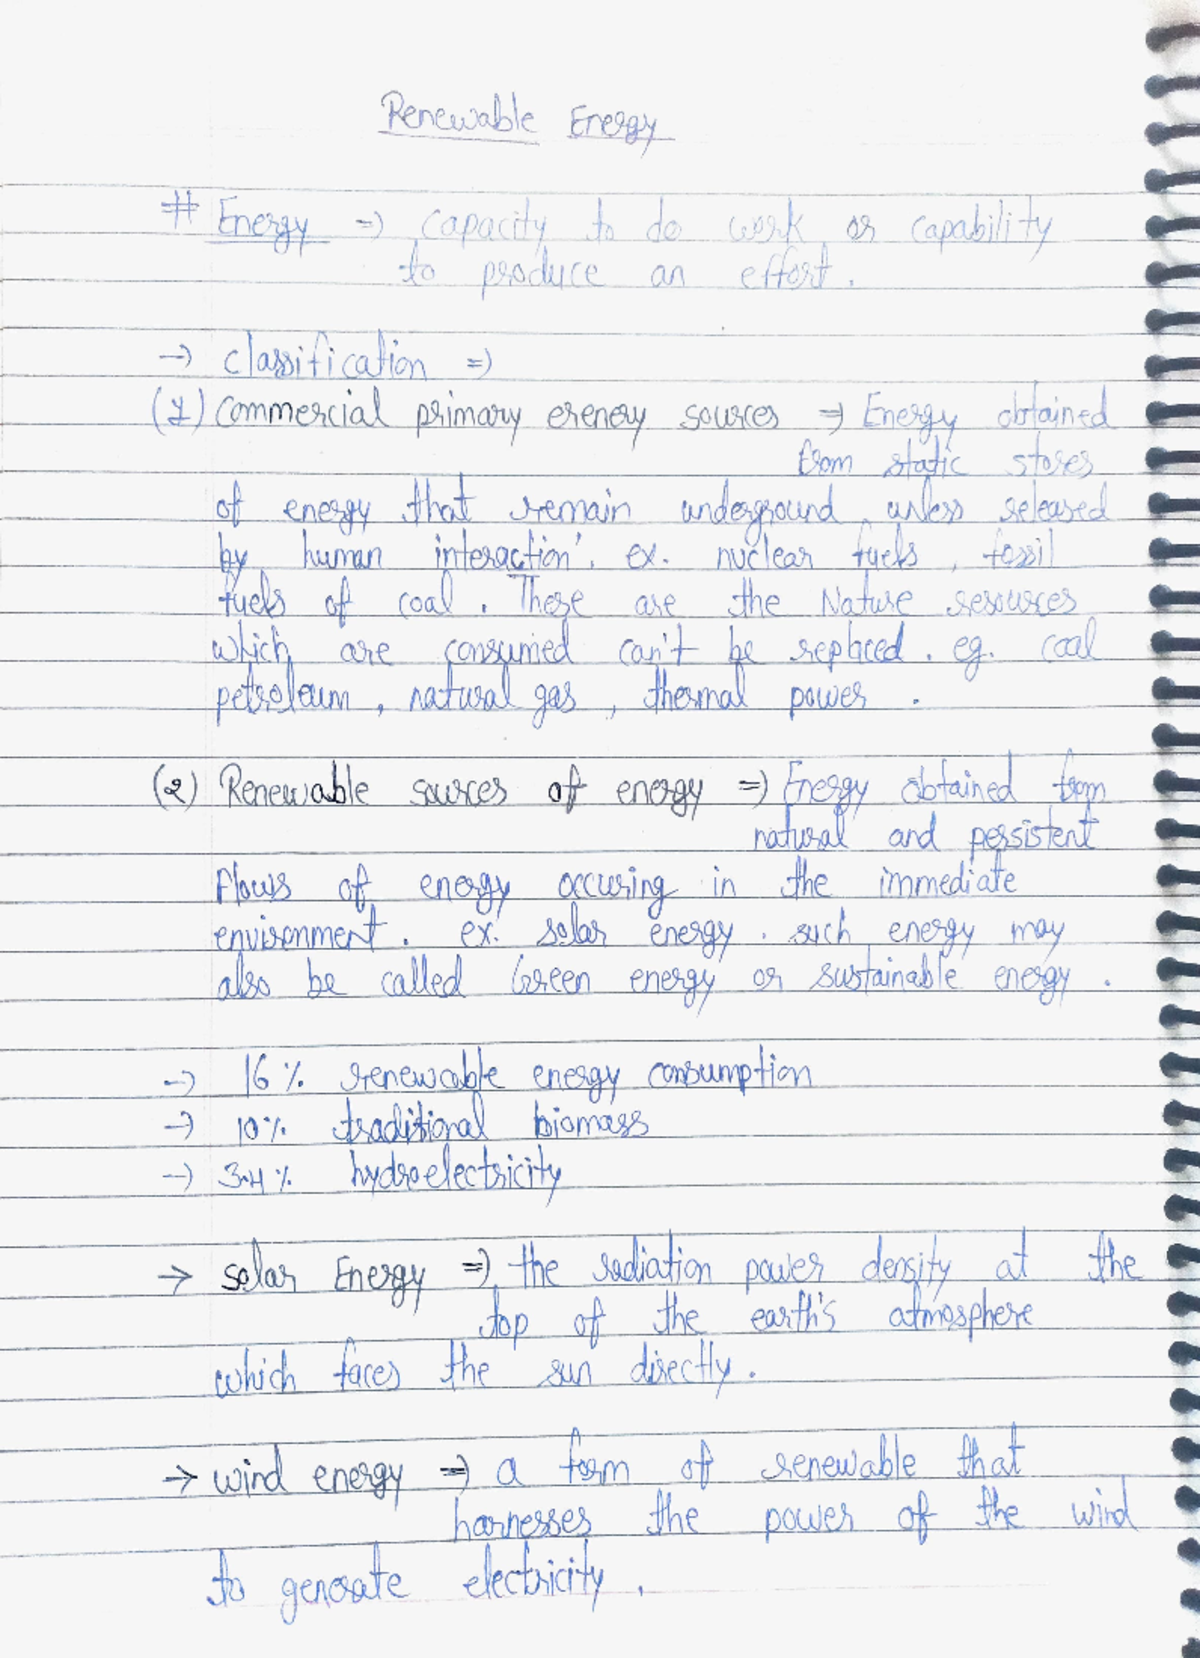 Renewable Energy
# Energy => capacity to do work or capability
to produce an effort.
→ classification =>
(1) Commercial primary erenery sources => Energy obtained
from static stores
of energy that remain underground unless released
by human interaction'. ex. nuclear fuels, fossil
fuels of coal. These are the Nature resources
which are consumed can't be replaced. eg. coal
petroleum, natural gas, thermal power.
(2) Renewable sources of energy => Energy obtained from
natural and persistent
flows of energy occuring in the immediate
environment. ex. solar energy. such energy may
also be called Green energy or sustainable energy.
→ 16% renewable energy consumption
→ 10% traditional biomass
→ 3.4% hydroelectricity
→ solar Energy => the radiation power density at the
top of the earth's atmosphere
which faces the sun directly.
→ wind energy => a form of renewable that
harnesses the power of the wind
to generate electricity.